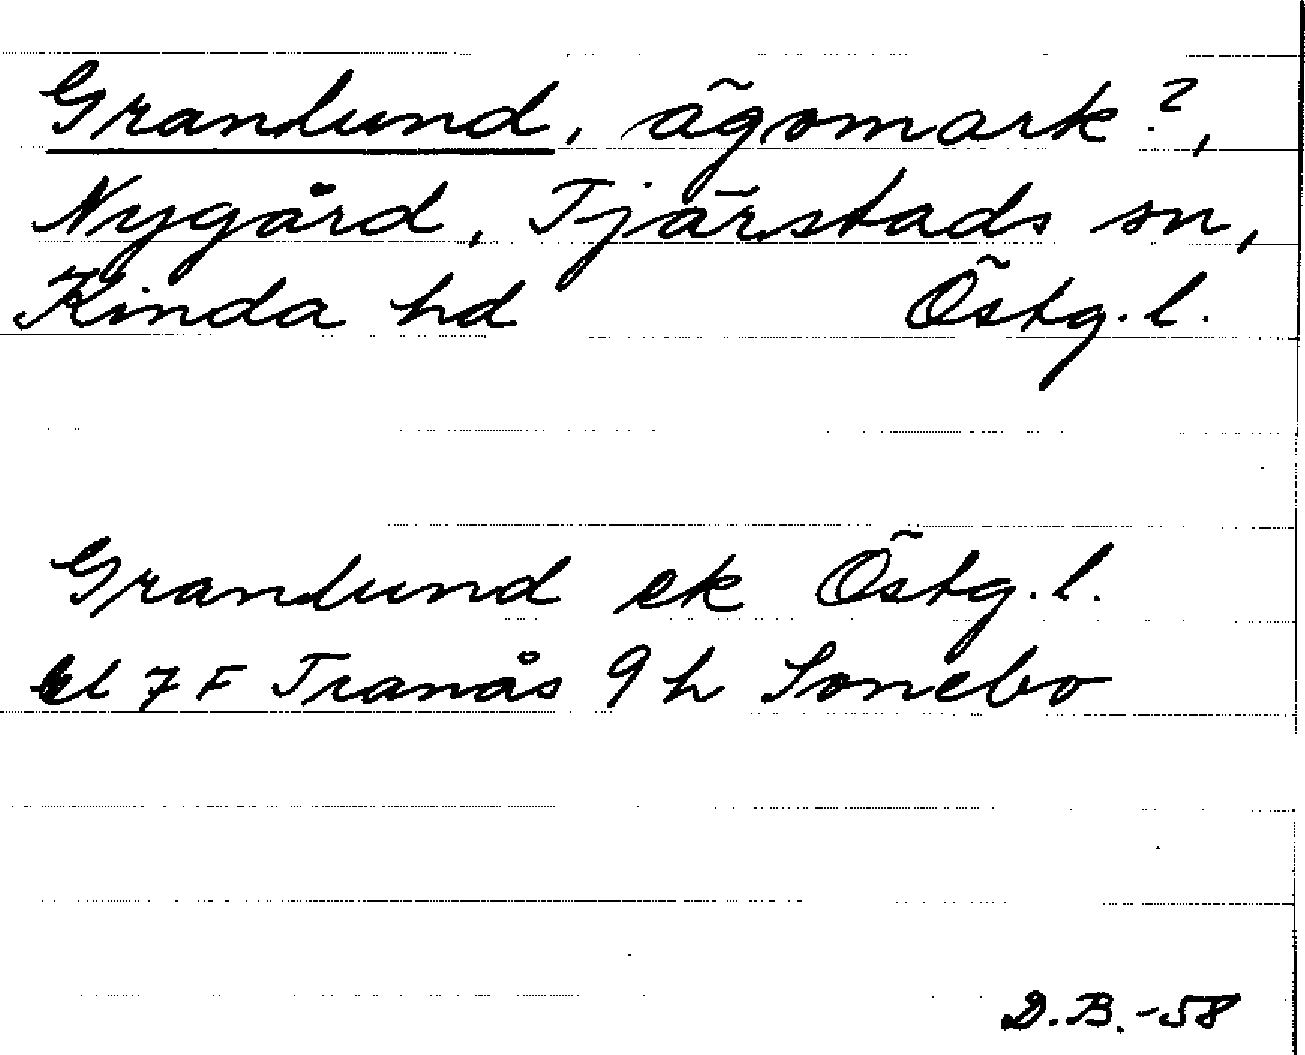 Granlund, ägomark?,
Nygård, Tjärstads sn,
Kinda hd Östg. l.
Granlund ek Östg. l.
bl 7 F Tranås 9 h Sonebo
D. B. -58